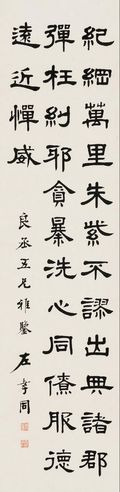 紀綱萬里朱紫不謬出典諸郡
彈枉糾邪貪暴洗心同僚服德
遠近憚威
良丞五兄雅鑒
左孝同